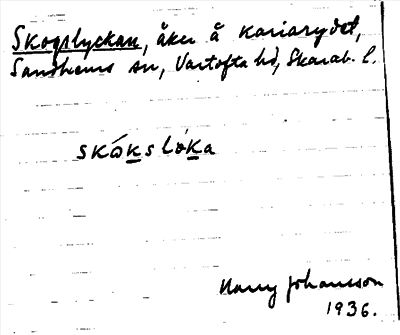 Skogslyckan, åker å Kariarydet,
Sandhems sn, Vartofta hd, Skarab. l.
skɷ́kslò̀ka
Harry Johansson
1936.